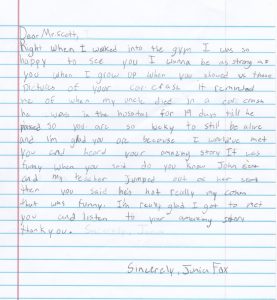 Dear Mr.scott,
Right when I walked into the gym I was so
happy to see you I wanna be as strong as
you when I grow up when you showed us those
Pictures of your car crash it reminded
me of when my uncle died in a car crash
he was in the hospital for 19 days till he
passed so you are so lucky to still be alive
and I'm glad you are because I would've met
you and heard your amazing story It was
funny when you said do you know John
and my teacher jumped out of her seat
then you said he's not really my cousin
that was funny. I'm really glad I got to met
you and listen to your amazing story
thank you.
Sincerely, Fox